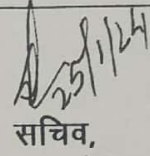 25/1/24
सचिव,